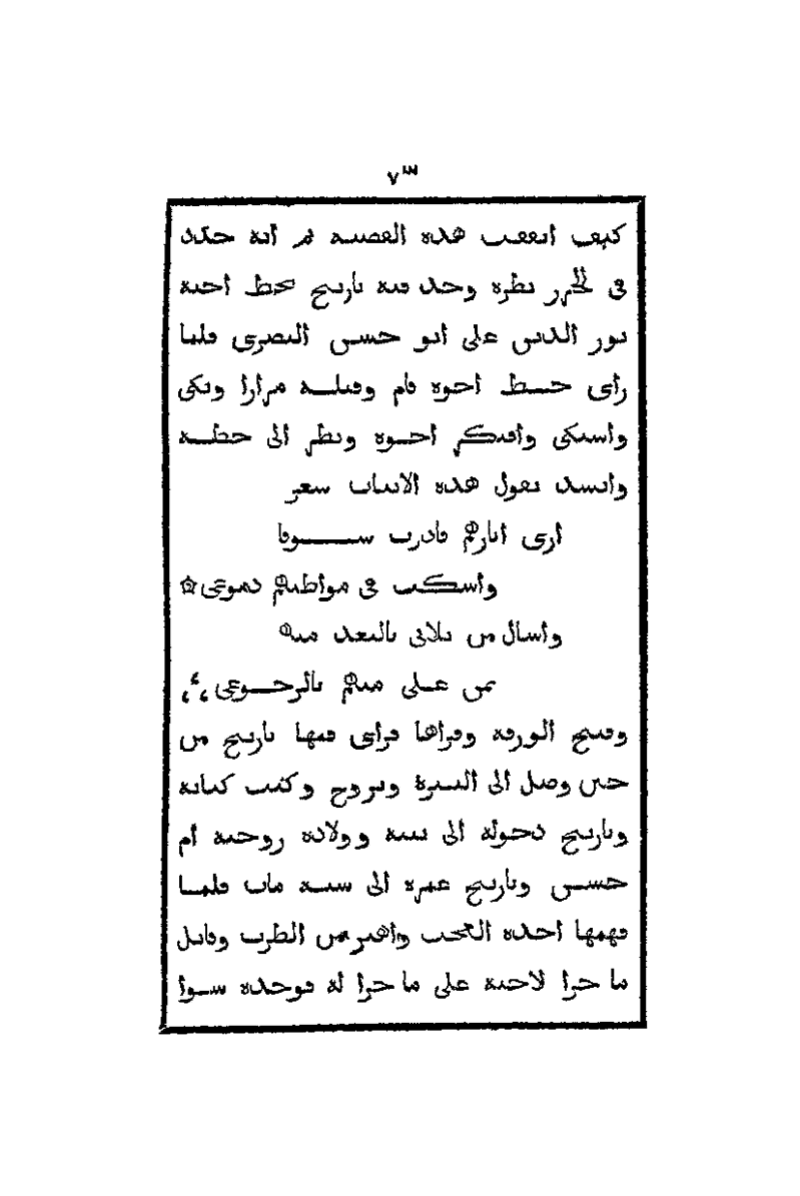 ٧٣
كيف اتفقت هذه القصية ثم انه جدد
في الحرز نظره وجد فيه تاريخ بخط اخيه
نور الدين على ابو حسن البصرى فلما
راى خط اخوه قام وقبله مرارا وبكى
واستكى وافتكر اخوه ونظر الى خطه
وانشد يقول هذه الابيات شعر
ارى اثارهم فاذوب شوقا
واسكب في مواطنهم دموعي
واسال من بلاني بالبعد منهم
يمن على منهم بالرجوعي
وفتح الورقة وقراها فراى فيها تاريخ من
حين وصل الى البصرة وتزوج وكتب كتابه
وتاريخ دخوله الى بيته وولادة زوجته ام
حسن وتاريخ عمره الى سنة مات فلما
فهمها اخذه العجب واهتز من الطرب وقابل
ما جرا لاخيه على ما جرا له فوجده سوا